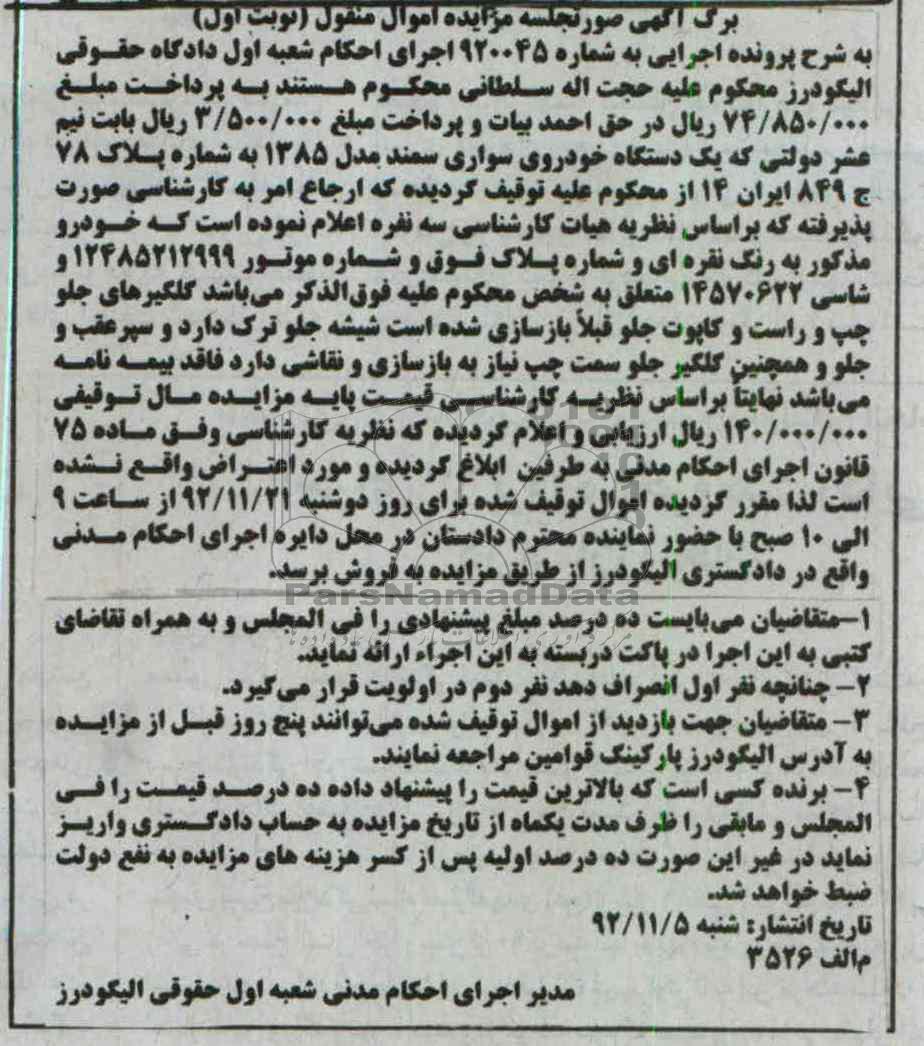 برگ آگهی صورتجلسه مزایده اموال منقول (نوبت اول)
به شرح پرونده اجرایی به شماره ۹۲۰۰۴۵ اجرای احکام شعبه اول دادگاه حقوقی
الیگودرز محکوم علیه حجت اله سلطانی محکوم هستند به پرداخت مبلغ
۷۴/۸۵۰/۰۰۰ ریال در حق احمد بیات و پرداخت مبلغ ۳/۵۰۰/۰۰۰ ریال بابت نیم
عشر دولتی که یک دستگاه خودروی سواری سمند مدل ۱۳۸۵ به شماره پلاک ۷۸
ج ۸۴۹ ایران ۱۴ از محکوم علیه توقیف گردیده که ارجاع امر به کارشناسی صورت
پذیرفته که براساس نظریه هیات کارشناسی سه نفره اعلام نموده است که خودرو
مذکور به رنگ نقره ای و شماره پلاک فوق و شماره موتور ۱۲۴۸۵۲۱۲۹۹۹ و
شاسی ۱۴۵۷۰۶۲۲ متعلق به شخص محکوم علیه فوق‌الذکر می‌باشد گلگیرهای جلو
چپ و راست و کاپوت جلو قبلاً بازسازی شده است شیشه جلو ترک دارد و سپرعقب و
جلو و همچنین گلگیر جلو سمت چپ نیاز به بازسازی و نقاشی دارد فاقد بیمه نامه
می‌باشد نهایتاً براساس نظریه کارشناسی قیمت پایه مزایده مال توقیفی
۱۴۰/۰۰۰/۰۰۰ ریال ارزیابی و اعلام گردیده که نظریه کارشناسی وفق ماده ۷۵
قانون اجرای احکام مدنی به طرفین ابلاغ گردیده و مورد اعتراض واقع نشده
است لذا مقرر گردیده اموال توقیف شده برای روز دوشنبه ۹۲/۱۱/۲۱ از ساعت ۹
الی ۱۰ صبح با حضور نماینده محترم دادستان در محل دایره اجرای احکام مدنی
واقع در دادگستری الیگودرز از طریق مزایده به فروش برسد.
ParsNamadData
۱-متقاضیان می‌بایست ده درصد مبلغ پیشنهادی را فی المجلس و به همراه تقاضای
کتبی به این اجرا در پاکت دربسته به این اجراء ارائه نماید.
۲- چنانچه نفر اول انصراف دهد نفر دوم در اولویت قرار می‌گیرد.
۳- متقاضیان جهت بازدید از اموال توقیف شده می‌توانند پنج روز قبل از مزایده
به آدرس الیگودرز پارکینگ قوامین مراجعه نمایند.
۴- برنده کسی است که بالاترین قیمت را پیشنهاد داده ده درصد قیمت را فی
المجلس و مابقی را ظرف مدت یکماه از تاریخ مزایده به حساب دادگستری واریز
نماید در غیر این صورت ده درصد اولیه پس از کسر هزینه های مزایده به نفع دولت
ضبط خواهد شد.
تاریخ انتشار: شنبه ۹۲/۱۱/۵
م‌الف ۳۵۲۶
مدیر اجرای احکام مدنی شعبه اول حقوقی الیگودرز